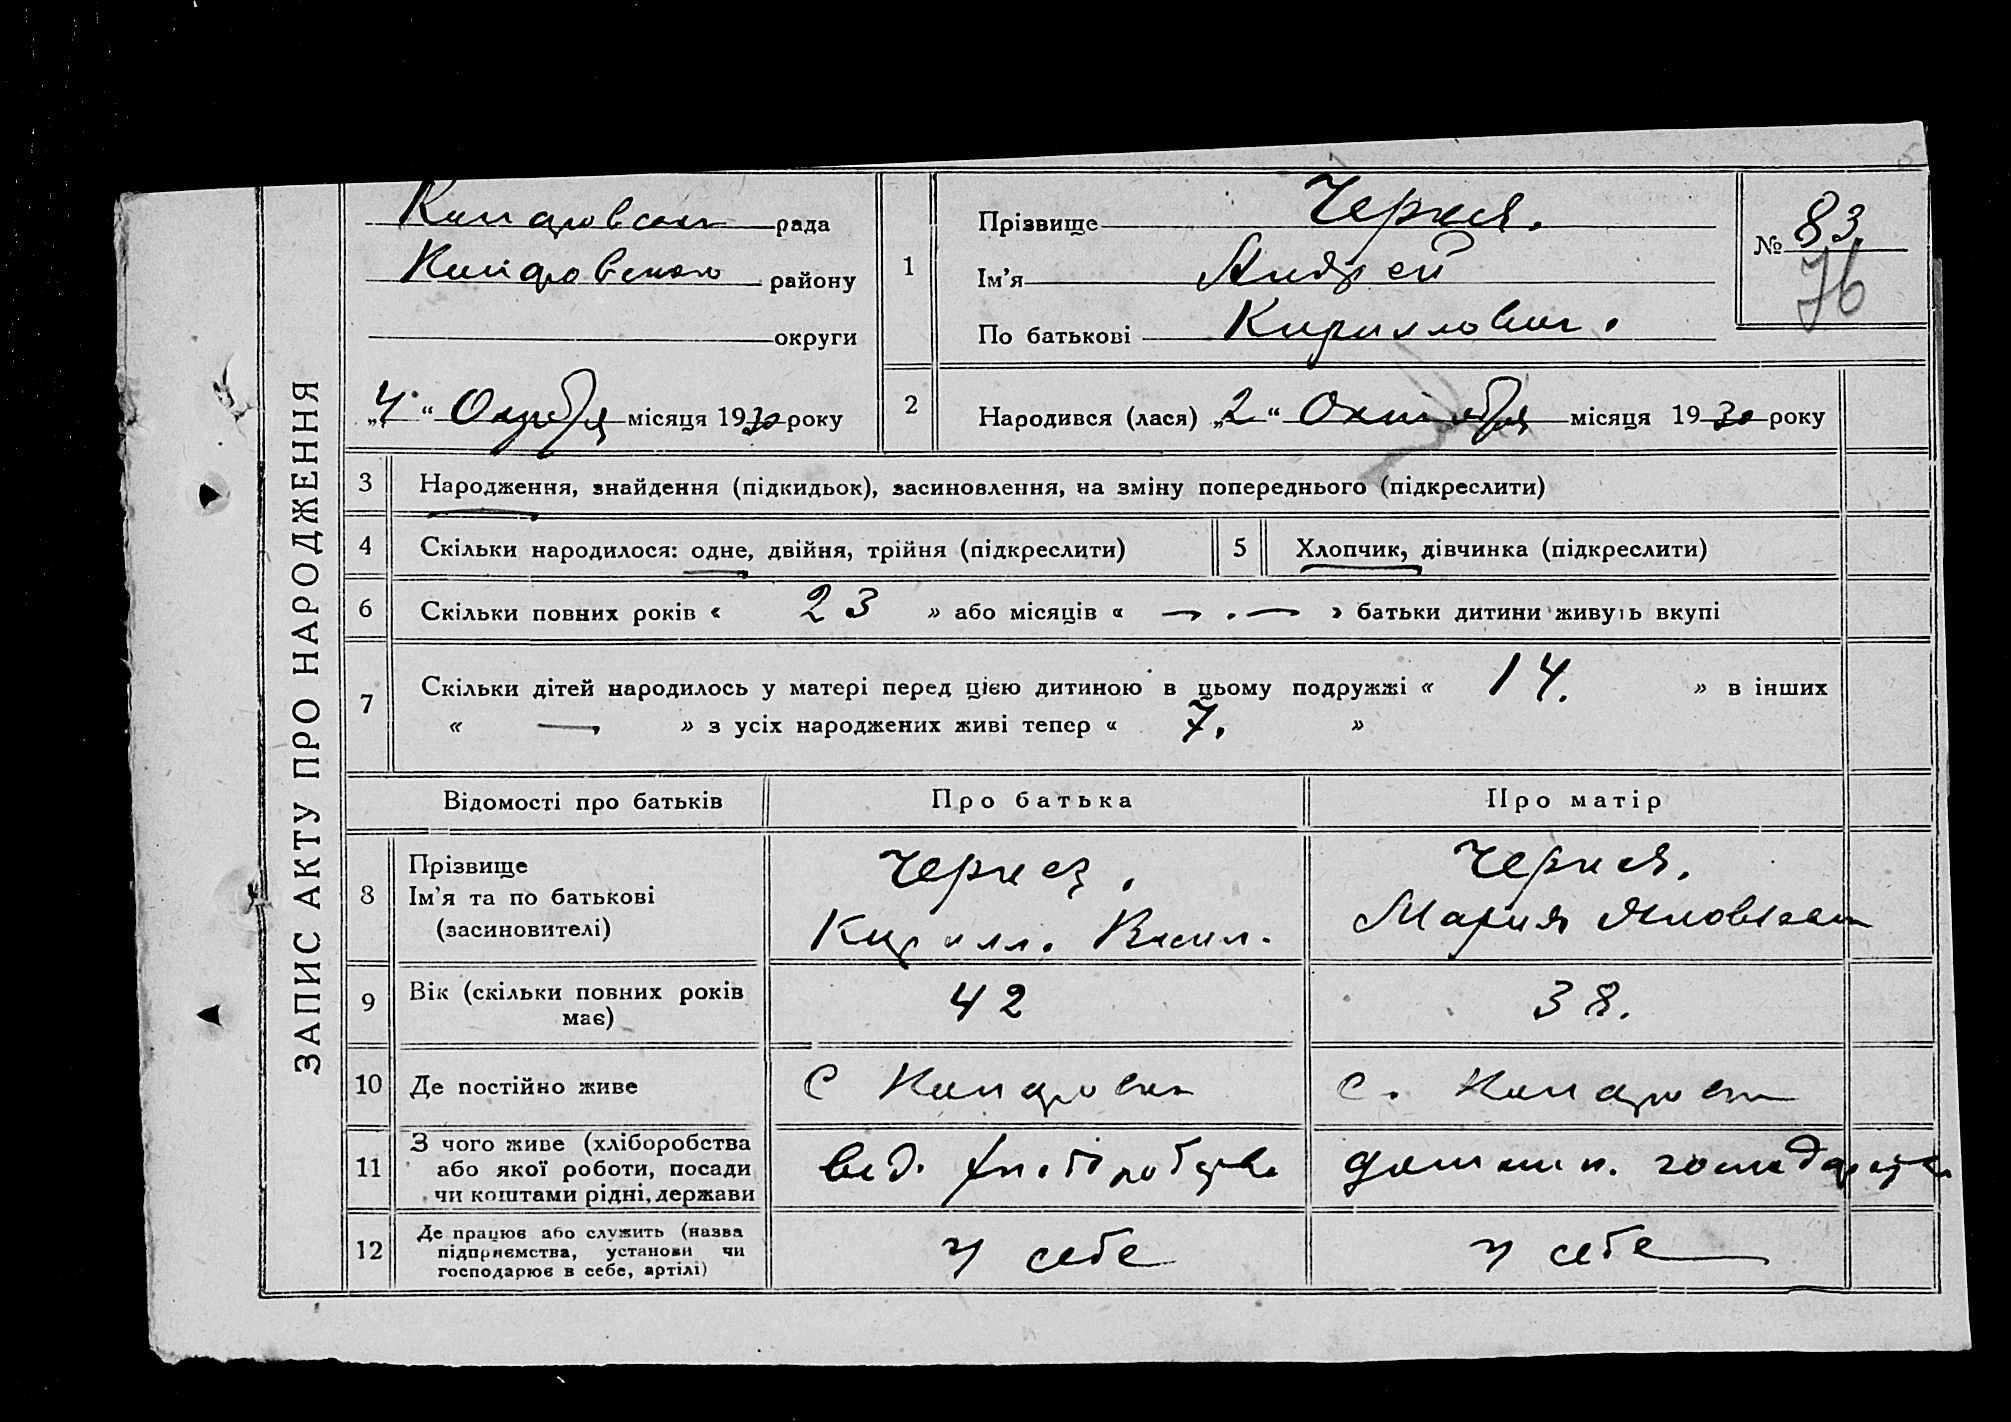 ЗАПИС АКТУ ПРО НАРОДЖЕННЯ
рада
району
округи
„4“ Октября місяця 1930 року
1
Прізвище
Ім'я Андрей
По батькові Кириллович.
№ 83
76
2 Народився (лася) „2“ Октября місяця 1930 року
3 Народження, знайдення (підкидьок), засиновлення, на зміну попереднього (підкреслити)
4 Скільки народилося: одне, двійня, трійня (підкреслити) 5 Хлопчик, дівчинка (підкреслити)
6 Скільки повних років « 23 » або місяців « — . — » батьки дитини живуть вкупі
7 Скільки дітей народилось у матері перед цією дитиною в цьому подружжі « 14. » в інших
« — » з усіх народжених живі тепер « 7. »
Відомості про батьків Про батька Про матір
8 Прізвище
Ім'я та по батькові
(засиновителі)
Кирилл. Васил.
Мария
9 Вік (скільки повних років
має)
42 38.
10 Де постійно живе с с.
11 З чого живе (хліборобства
або якої роботи, посади
чи коштами рідні, держави
від. хліборобства
домашн. господарства
12 Де працює або служить (назва
підприємства, установи чи
господарює в себе, артілі)
у себе у себе